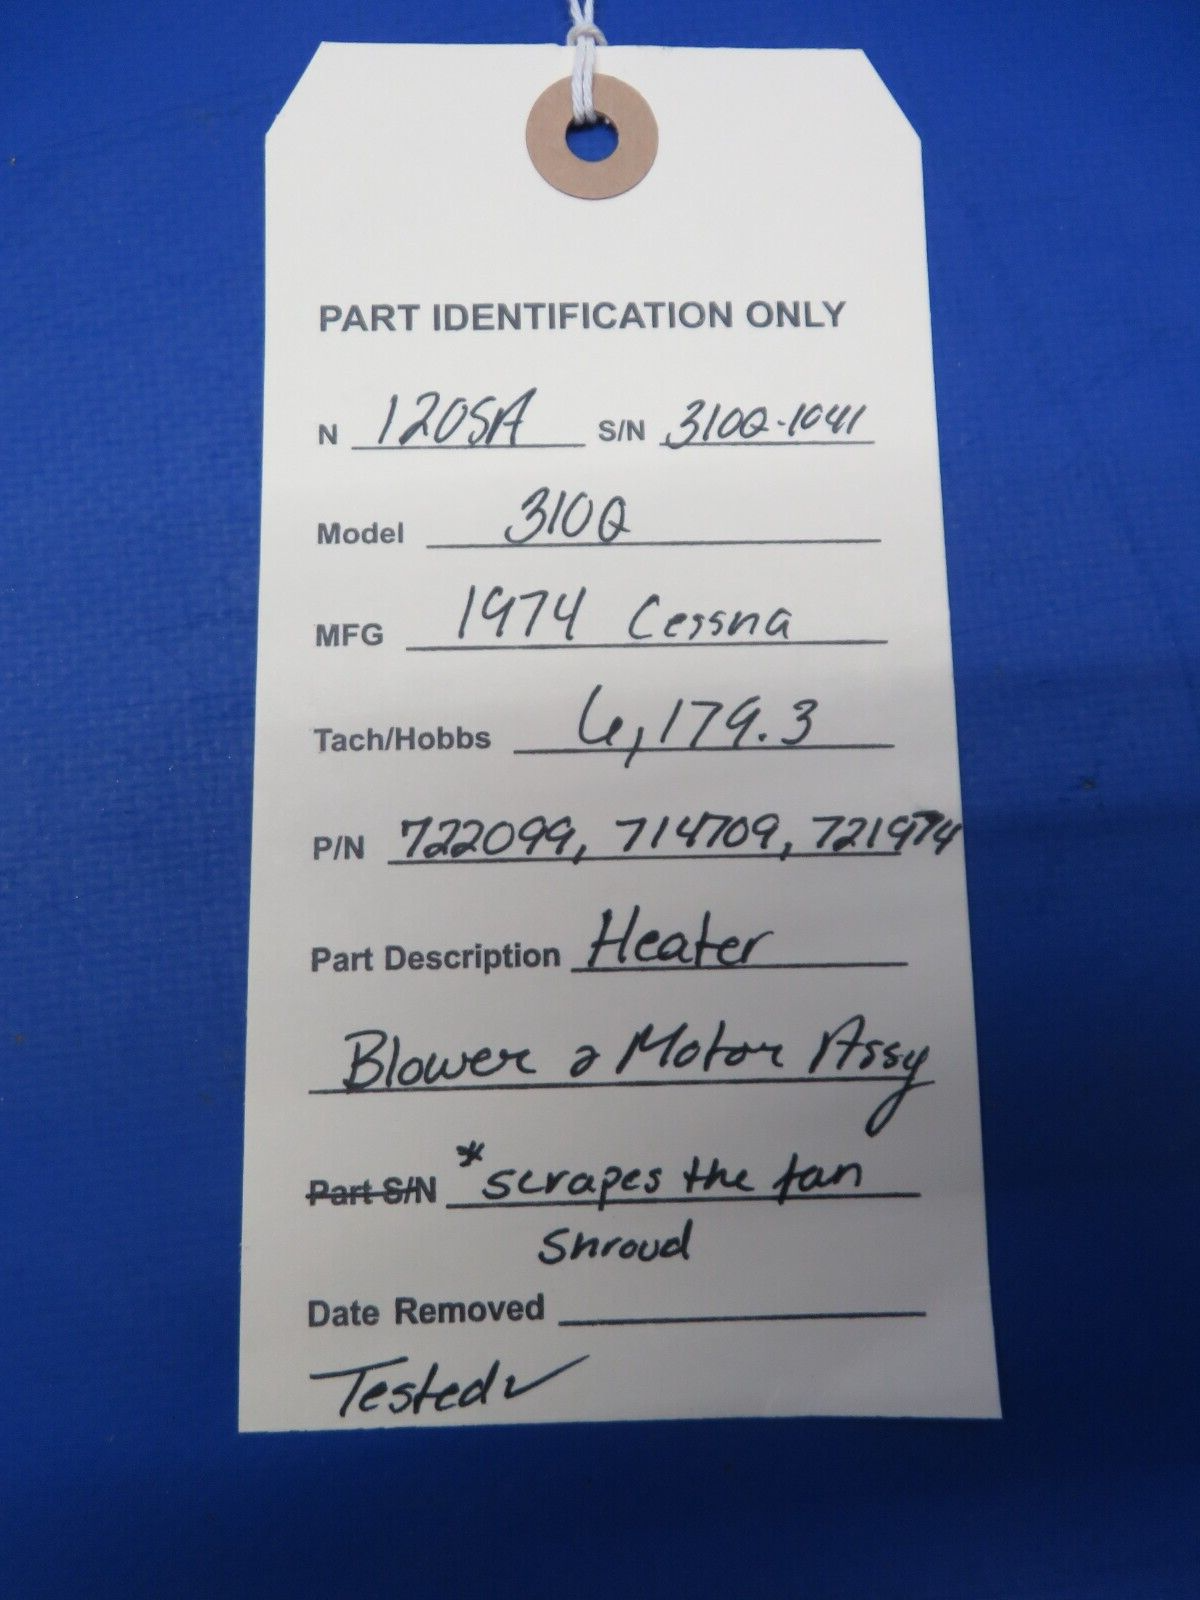 PART IDENTIFICATION ONLY
N 1205A S/N 310Q-1041
Model 310Q
MFG 1974 Cessna
Tach/Hobbs 6,179.3
P/N 722099, 714709, 721974
Part Description Heater
Blower & Motor Assy
Part S/N *scrapes the fan
Shroud
Date Removed
Tested✓